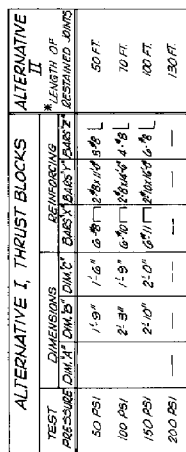 ALTERNATIVE I, THRUST BLOCKS
ALTERNATIVE II
TEST PRESSURE
DIMENSIONS
REINFORCING
* LENGTH OF RESTAINED JOINTS
DIM."A" DIM."B" DIM."C" BARS"X" BARS"Y" BARS"Z"
50 PSI 1'-9" 1'-6" 3-#8 50 FT.
100 PSI 2'-3" 1'-9" 6-#10 4-#8 70 FT.
150 PSI 2'-10" 2'-0" 6-#11 6-#8 100 FT.
200 PSI — — — — 130 FT.